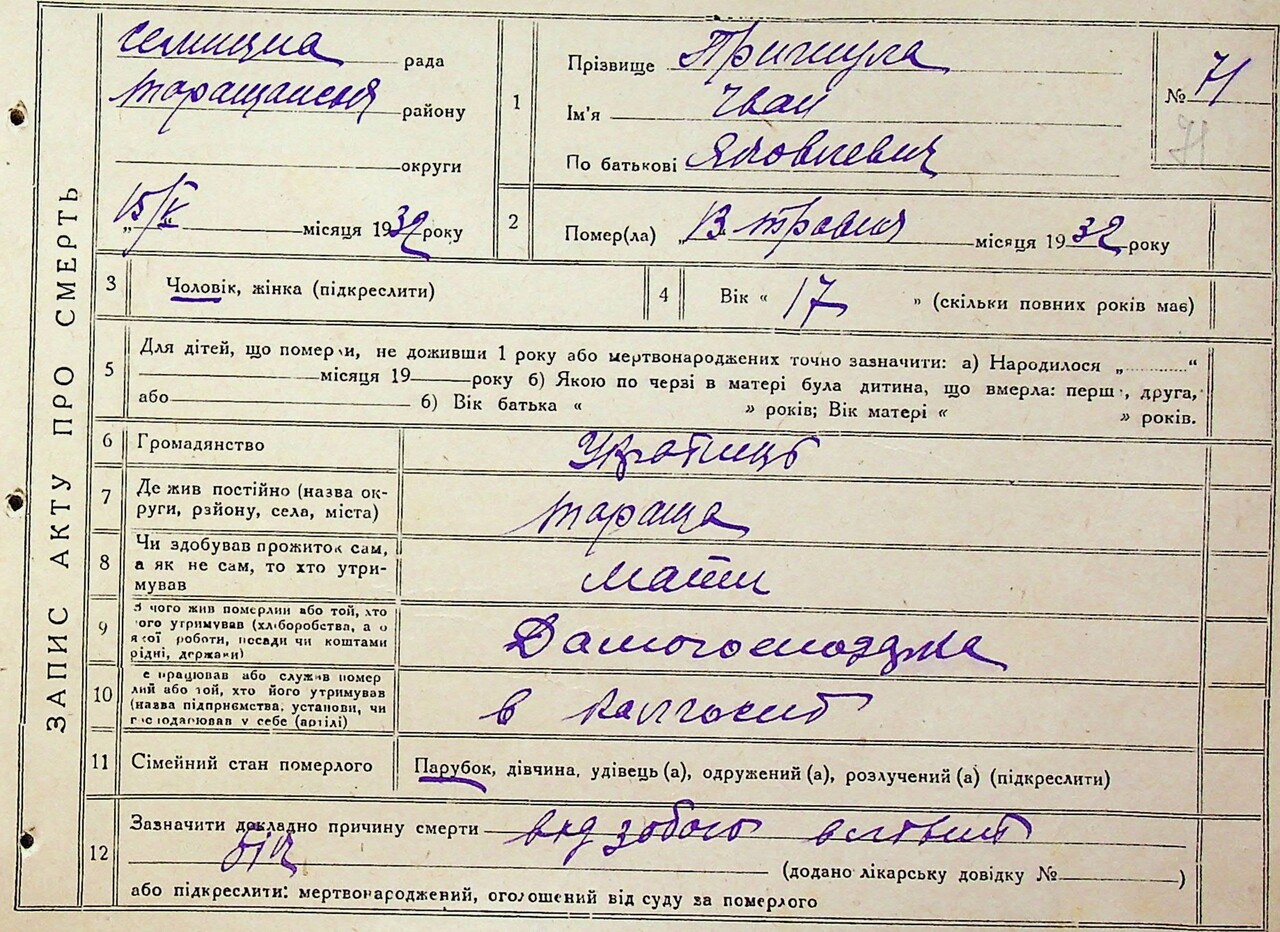 ЗАПИС АКТУ ПРО СМЕРТЬ
селищна рада
Таращанськ району
округи
15/V місяця 1932 року
1
Прізвище
Ім'я Іван
По батькові Яковлевич
№ 71
71
2
Помер(ла) „13 травня місяця 1932 року
3
Чоловік, жінка (підкреслити)
4
Вік « 17 » (скільки повних років має)
5
Для дітей, що померли, не доживши 1 року або мертвонароджених точно зазначити: а) Народилося „ “
місяця 19 року б) Якою по черзі в матері була дитина, що вмерла: перша, друга,
або б) Вік батька « » років; Вік матері « » років.
6
Громадянство
7
Де жив постійно (назва ок-
руги, рзйону, села, міста)
Тараща
8
Чи здобував прожиток сам,
а як не сам, то хто утри-
мував
мати
9
З чого жив померлий або той, хто
його утримував (хліборобства, а о
якої роботи, посади чи коштами
рідні, держави)
Домогосподарка
10
е працював або служив помер
лий або той, хто його утримував
(назва підприємства, установи, чи
господарював у себе (артілі)
в колгоспі
11
Сімейний стан померлого
Парубок, дівчина, удівець (а), одружений (а), розлучений (а) (підкреслити)
12
Зазначити докладно причину смерти від
(додано лікарську довідку № )
або підкреслити: мертвонароджений, оголошений від суду за померлого